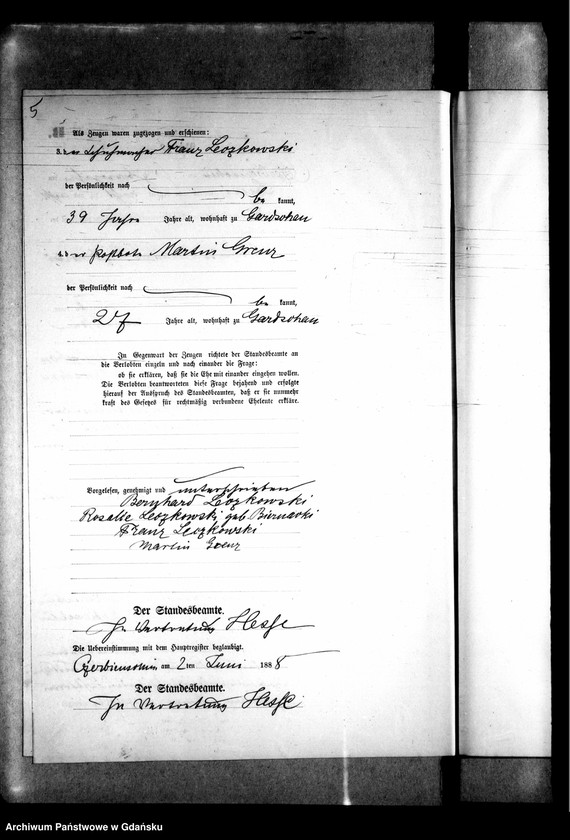 5
Als Zeugen waren zugezogen und erschienen:
3. der Schuhmacher Franz Leozkowski
der Persönlichkeit nach
be kannt,
39 Jahre Jahre alt, wohnhaft zu Gardschau
4. der Martin Grenz
der Persönlichkeit nach
be kannt,
27 Jahre alt, wohnhaft zu Gardschau
In Gegenwart der Zeugen richtete der Standesbeamte an
die Verlobten einzeln und nach einander die Frage:
ob sie erklären, daß sie die Ehe mit einander eingehen wollen.
Die Verlobten beantworteten diese Frage bejahend und erfolgte
hierauf der Ausspruch des Standesbeamten, daß er sie nunmehr
kraft des Gesetzes für rechtmäßig verbundene Eheleute erkläre.
Vorgelesen, genehmigt und unterschrieben
Bernhard Leozkowski
Rosalie Leozkowski geb. Biernacki
Franz Leozkowski
Martin Grenz
Der Standesbeamte.
In Vertretung Hesse
Die Uebereinstimmung mit dem Hauptregister beglaubigt.
am 2 ten Juni 1888
Der Standesbeamte.
In Vertretung Hesse
Archiwum Państwowe w Gdańsku